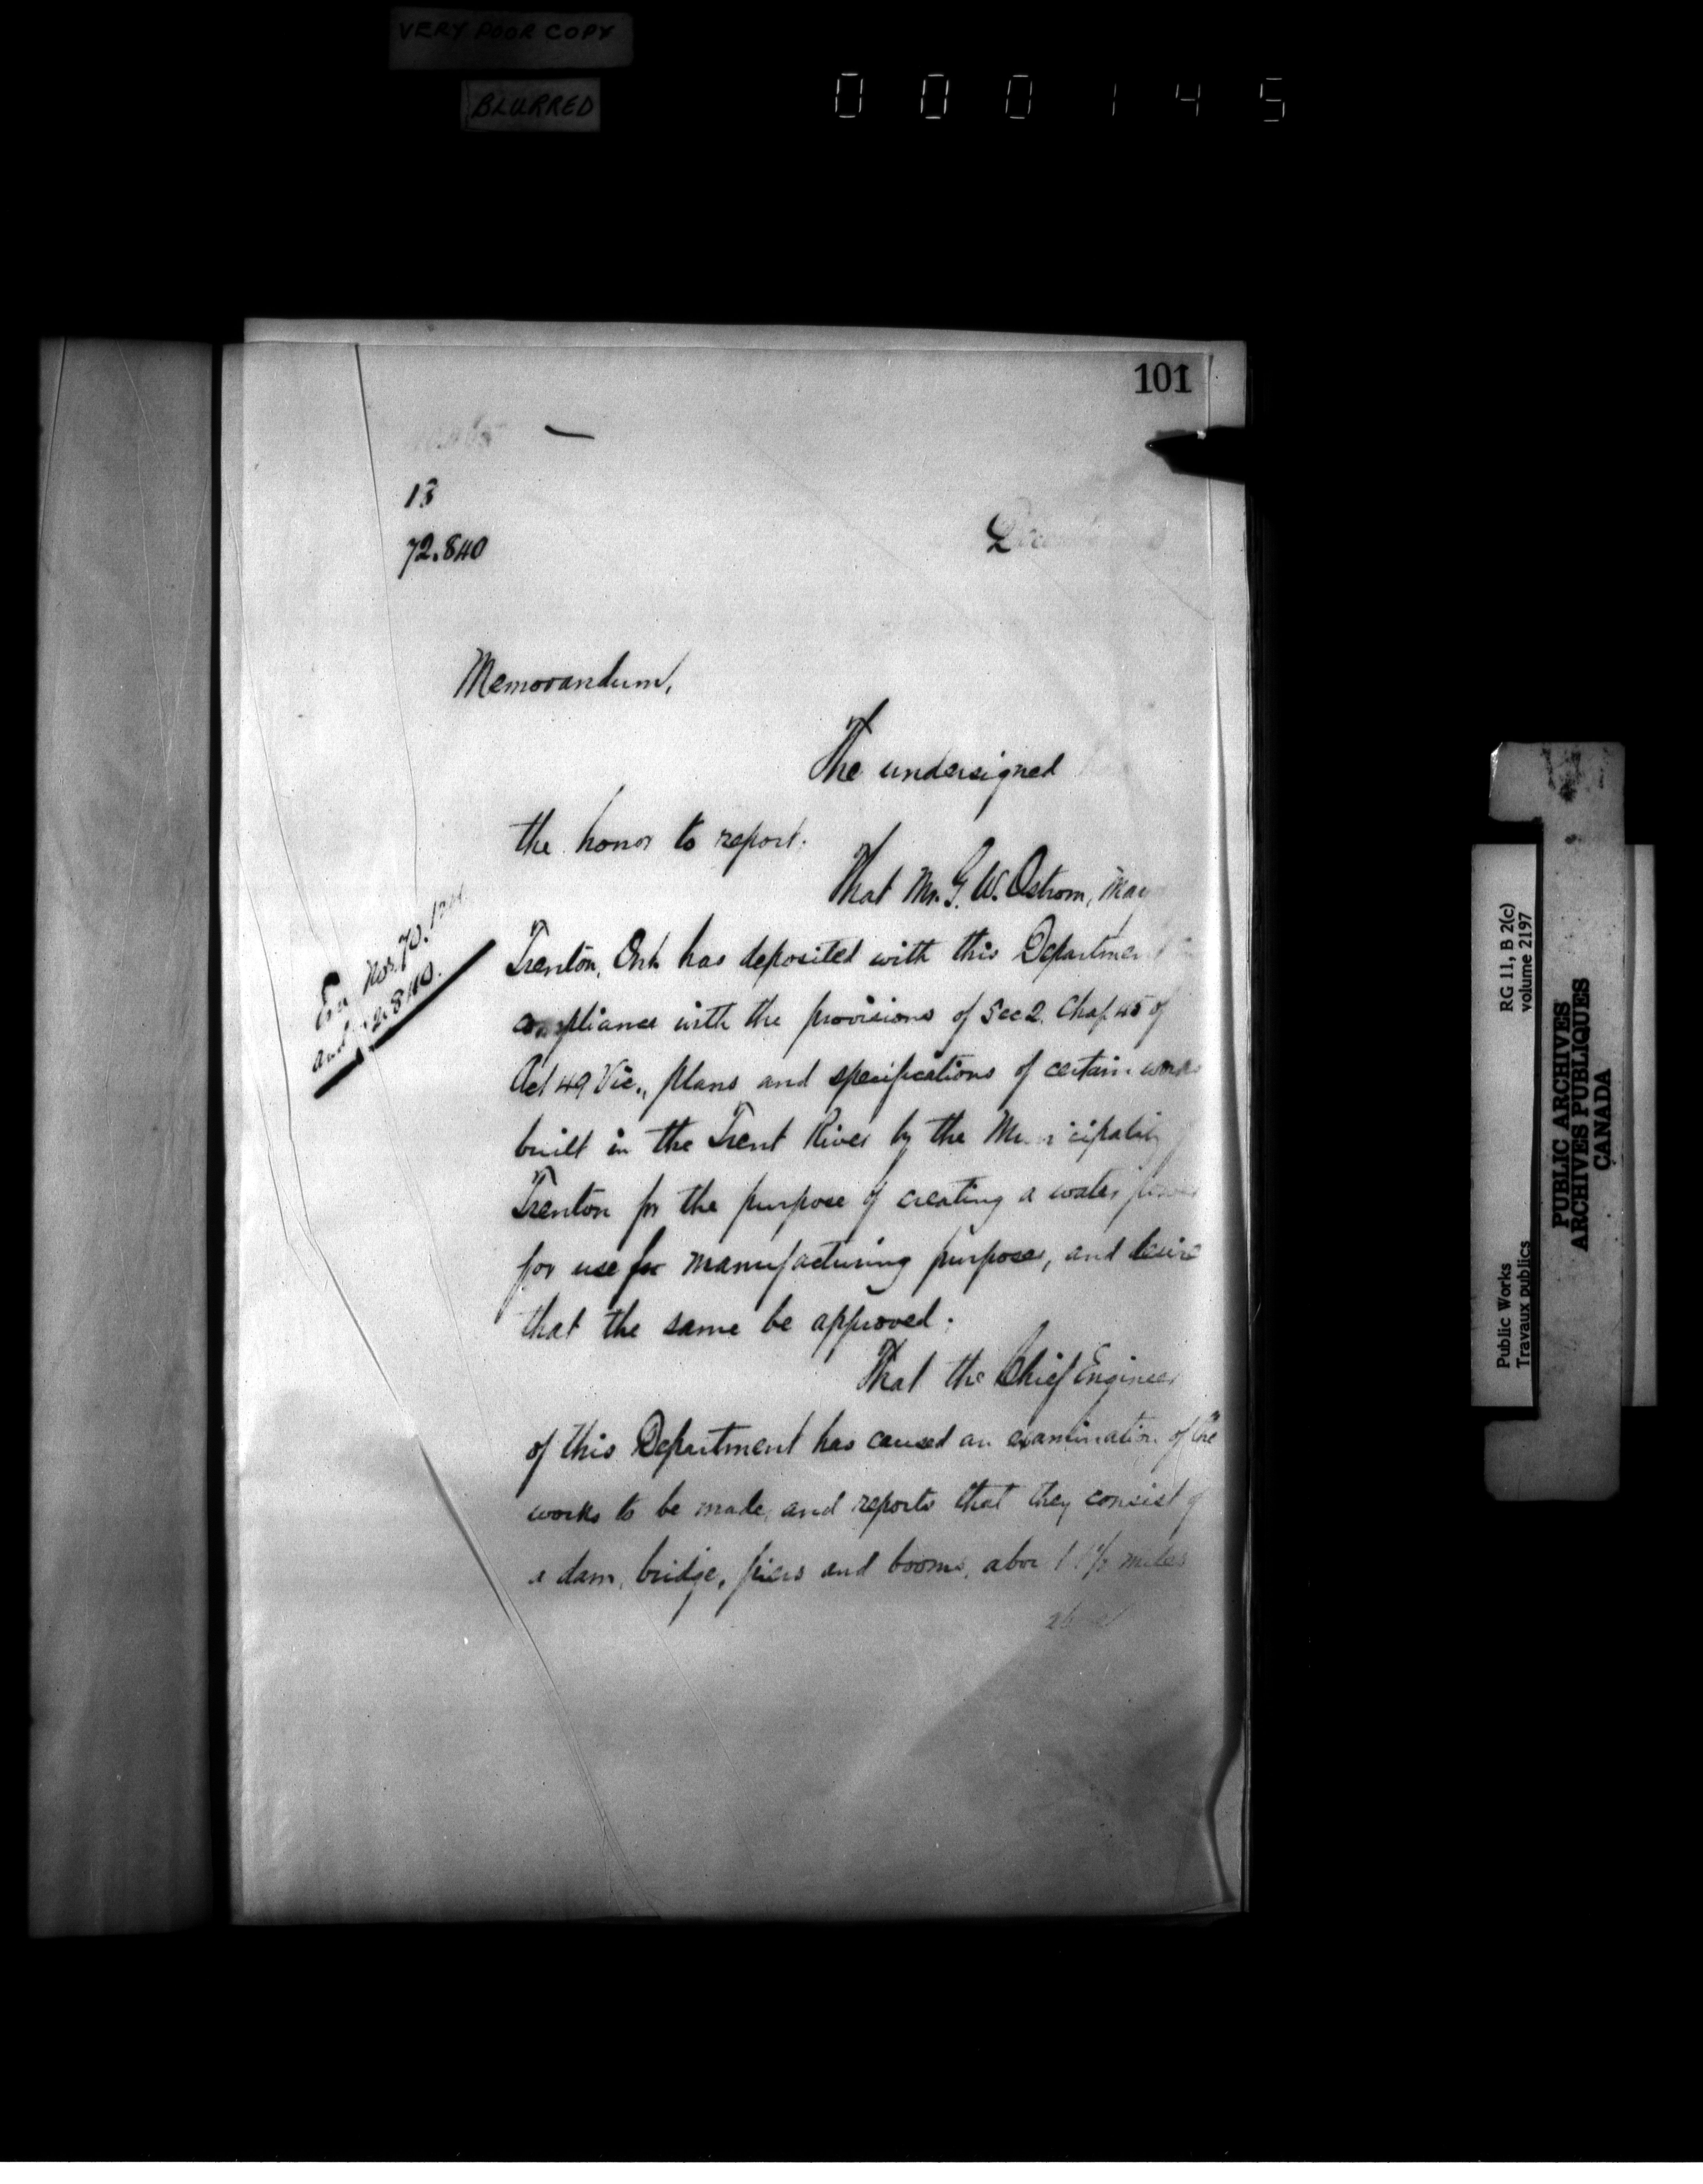 VERY POOR COPY
BLURRED
000145
101
13
72.840
Memorandum,
The undersigned
the honor to report.
That Mr. G. W. Ostrom, May
Trenton, Ont. has deposited with this Departmen
compliance with the provisions of Sec 2. Chap. 45 of
Act 49 Vic., plans and specifications of certain works
built in the Trent River by the Municipality
Trenton for the purpose of creating a water power
for use for manufacturing purposes, and desire
that the same be approved.
That the Chief Engineer
of this Department has caused an examination of the
works to be made, and reports that they consist of
a dam, bridge, piers and booms, about 1 1/2 miles
Nos. 70.
and 72840.
RG 11, B 2(c)
volume 2197
Public Works
Travaux publics
PUBLIC ARCHIVES
ARCHIVES PUBLIQUES
CANADA